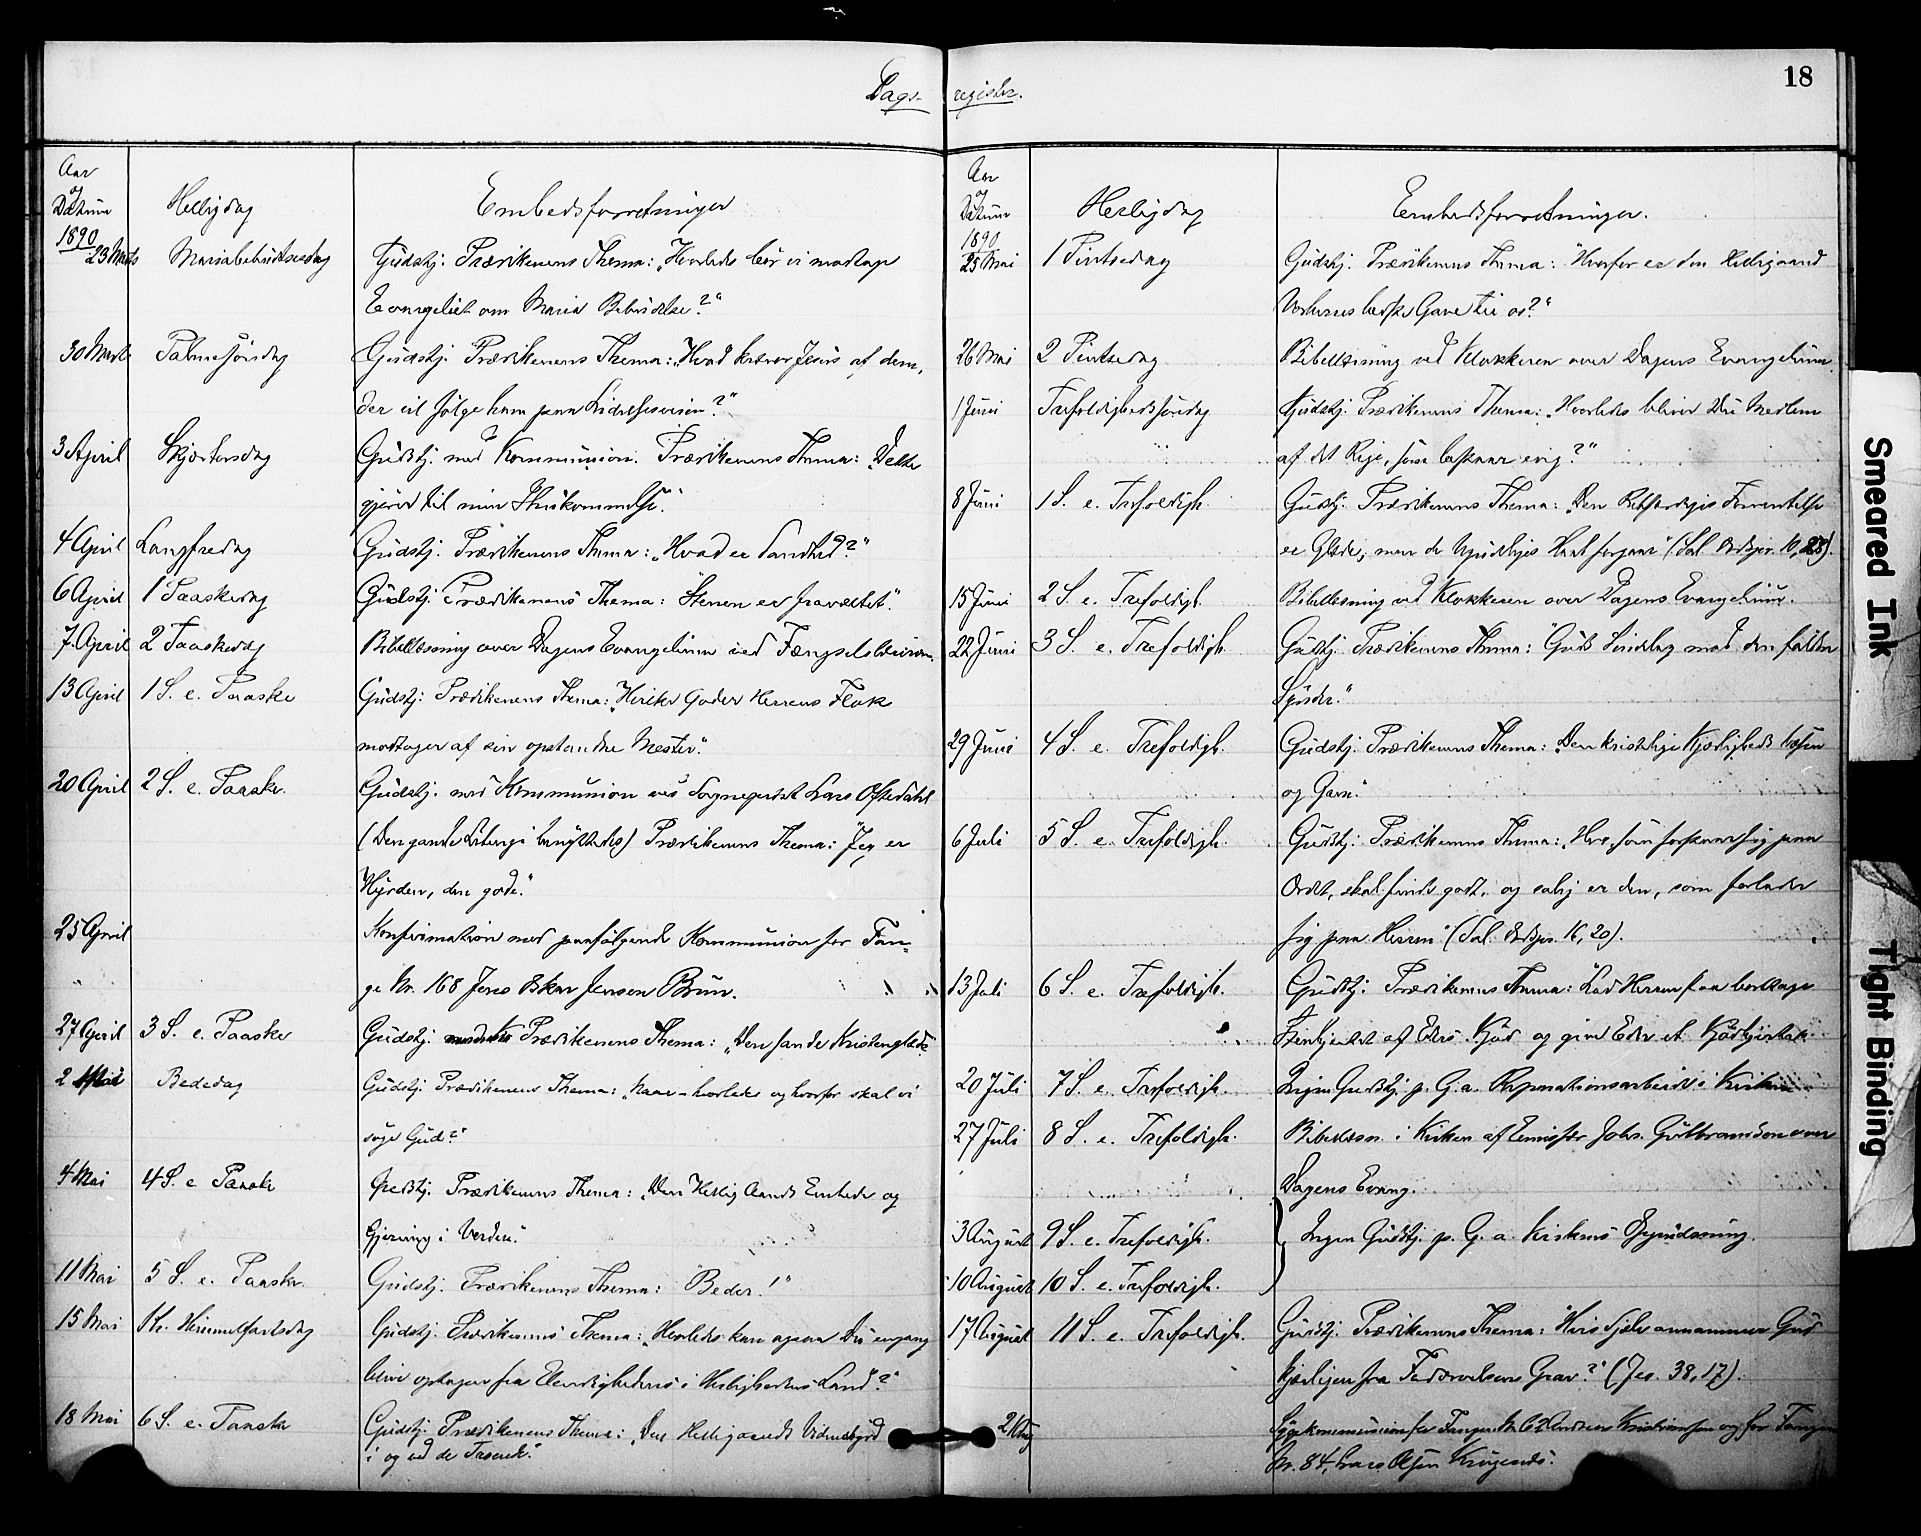 Dagsregister.
18
Aar og Datum
Helligdag
Embedsforretninger
1890
23 Marts Mariabebudelsesdag Gudstj. Prædikenens Thema: „Hvorledes bør vi modtage
Evangeliet om Maria Bebudelse?"
30 Marts Palmesøndag Gudstj. Prædikenens Thema: „Hvad kræver Jesus af dem,
der vil følge ham paa Lidelsesveien?"
3 April Skjærtorsdag Gudstj. med Kommunion. Prædikenens Thema: Dette
gjører til min Ihukommelse.
4 April Langfredag Gudstj. Prædikenens Thema: „Hvad er Sandhed?"
6 April 1 Paaskedag Gudstj. Prædikenens Thema: Stenen er fravæltet".
7 April 2 Paaskedag Bibellæsning over Dagens Evangelium ved Fængselsbetjenten.
13 April 1 S. e. Paaske Gudstj. Prædikenens Thema: „Hvilke Goder Herrens Flok
modtager af sin opstandne Mester."
20 April 2 S. e. Paaske. Gudstj. med Kommunion ved Sognepræst Lars Oftedahl
(Den gamle Liturgi benyttedes) Prædikenens Thema: „Jeg er
Hyrden, den gode."
25 April Konfirmation med paafølgende Kommunion for Fan-
ge Nr. 168 Jens Oskar Jensen Brun.
27 April 3 S. e. Paaske Gudstj. Prædikenens Thema: „Den sande Kristenglæde."
2 Mai Bededag Gudstj. Prædikenens Thema: „Naar - hvorledes og hvorfor skal vi
søge Gud?"
4 Mai 4 S. e Paaske Gudstj. Prædikenens Thema: „Den Hellig Aands Embede og
Gjerning i Verden."
11 Mai 5 S. e. Paaske. Gudstj. Prædikenens Thema: "Beder!"
15 Mai Kr. Himmelfartsdag Gudstj. Prædikenens Thema: „Hvorledes kan ogsaa Du engang
blive optagen fra Elendighedens i Herlighedens Land?"
18 Mai 6 S. e. Paaske Gudstj. Prædikenens Thema: „Den Helligaands Vidnesbyrd
i og ved de Troende."
Aar og Datum
Helligdag
Embedsforretninger.
1890
25 Mai 1 Pintsedag Gudstj. Prædikenens Thema: "Hvorfor er den Helligaand
Vorherres bedste Gave til os?"
26 Mai 2 Pintsedag Bibellæsning ved Klokkeren over Dagens Evangelium.
1 Juni Trefoldighedssøndag Gudstj. Prædikenens Thema: „Hvorledes bliver Du Medlem
af det Rige, som bestaar evig?"
8 Juni 1 S. e. Trefoldigh. Gudstj. Prædikenens Thema: „Den Retfærdiges Forventelse
er Glæde, men de Ugudeliges Haab forgaar" (Sal. Ordspr. 10, 28).
15 Juni 2 S. e. Trefoldigh. Bibellæsning ved Klokkeren over Dagens Evangelium.
22 Juni 3 S. e. Trefoldigh. Gudstj. Prædikenens Thema: "Guds Sindelag mod den faldne
Synder."
29 Juni 4 S. e. Trefoldigh. Gudstj. Prædikenens Thema: „Den kristelige Kjærligheds Væsen
og Gavn."
6 Juli 5 S. e. Trefoldigh. Gudstj. Prædikenens Thema: „Hvo, som forstaar sig paa
Ordet, skal finde godt, og salig er den, som forlader
sig paa Herren" (Sal. Ordspr. 16, 20).
13 Juli 6 S. e. Trefoldigh. Gudstj. Prædikenens Thema: "Lad Herren faa borttage
Stenhjertet af Eders Kjød og give Eder et Kjødhjerte"
20 Juli 7 S. e. Trefoldigh. Ingen Gudstj. p. G. a. Reparationsarbeide i Kirken
27 Juli 8 S. e. Trefoldigh. Bibellæsn. i Kirken af Emissær Johs. Gulbrandson over
Dagens Evang.
3 August 9 S. e. Trefoldigh. Ingen Gudstj. p. G. a. Kirkens Opudsning.
10 August 10 S. e. Trefoldigh.
17 August 11 S. e. Trefoldigh. Gudstj. Prædikenens Thema: "Hvis Sjæle annammer Gud
kjærligen fra Fordærvelsens Grav?" (Jes. 38, 17).
21 Aug Sygekommunion for Fange Nr. 62 Andreas Kristiansen og for Fange
Nr. 84, Lars Olsen
Smeared Ink
Tight Binding